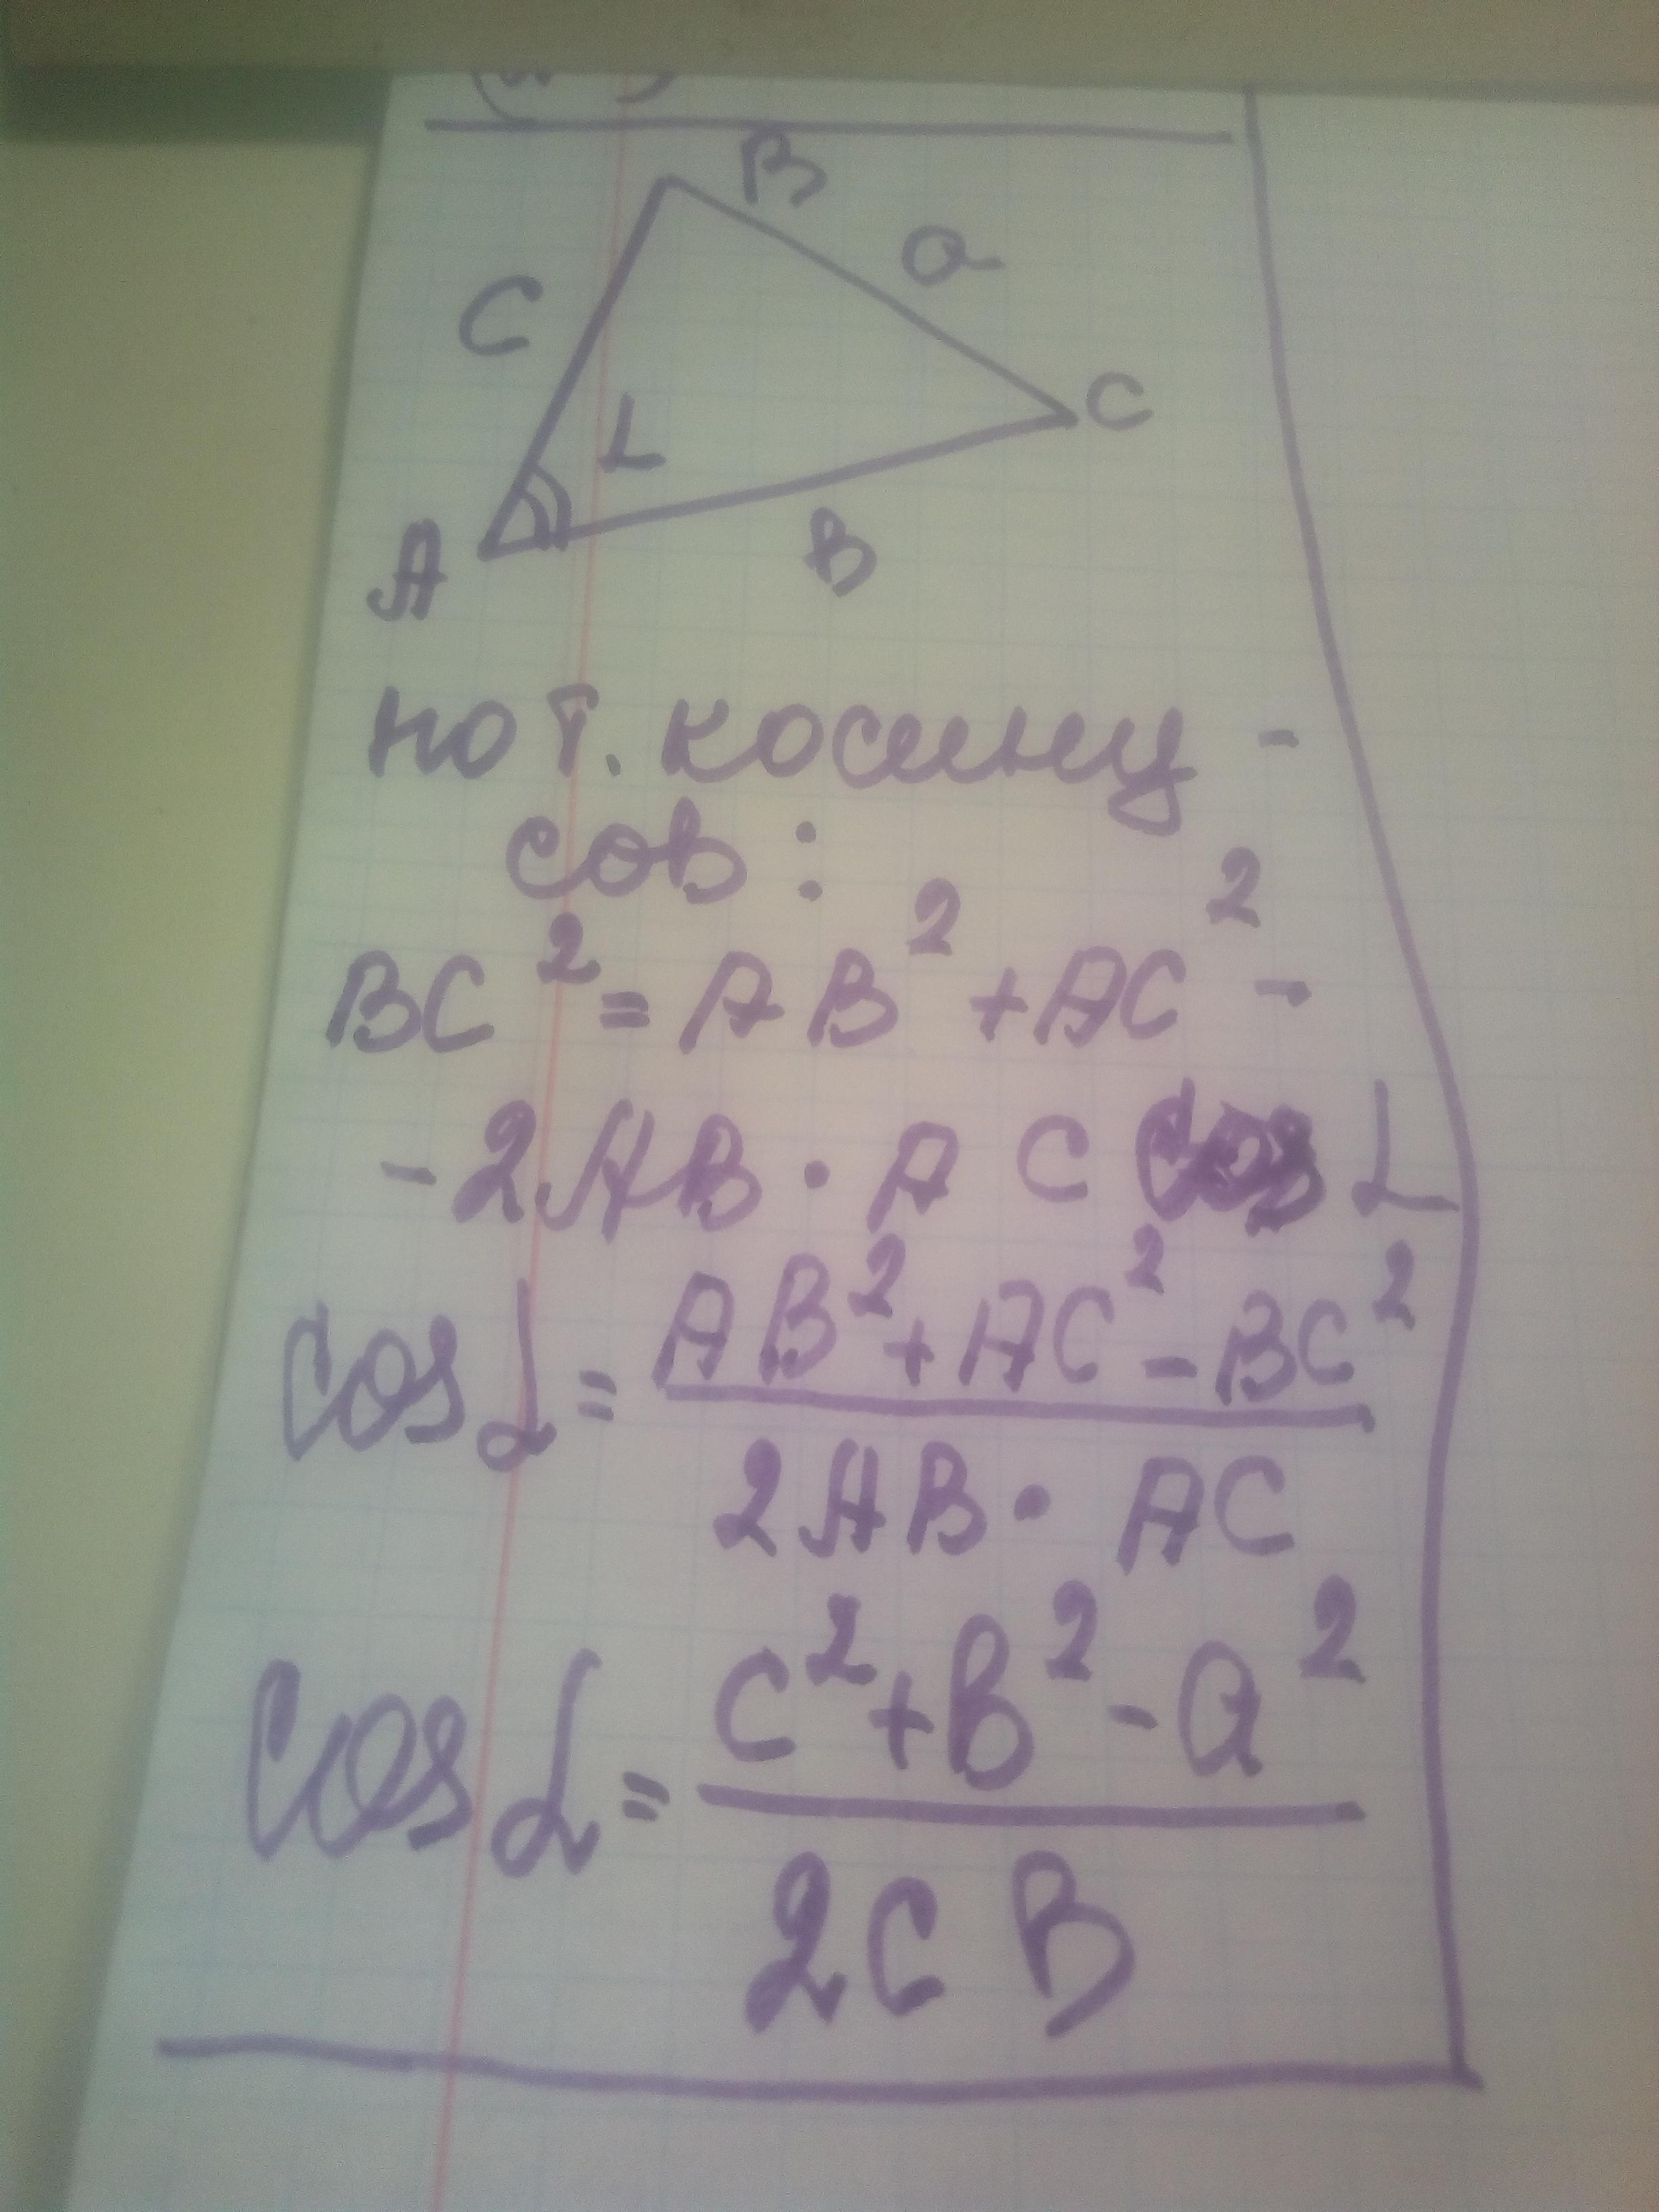 B
a
C
L
C
A
B
по т. косину-
сов:
BC² = AB² + AC² -
- 2AB · AC cos L
cos α = AB² + AC² - BC² / 2AB · AC
cos α = C² + B² - a² / 2CB